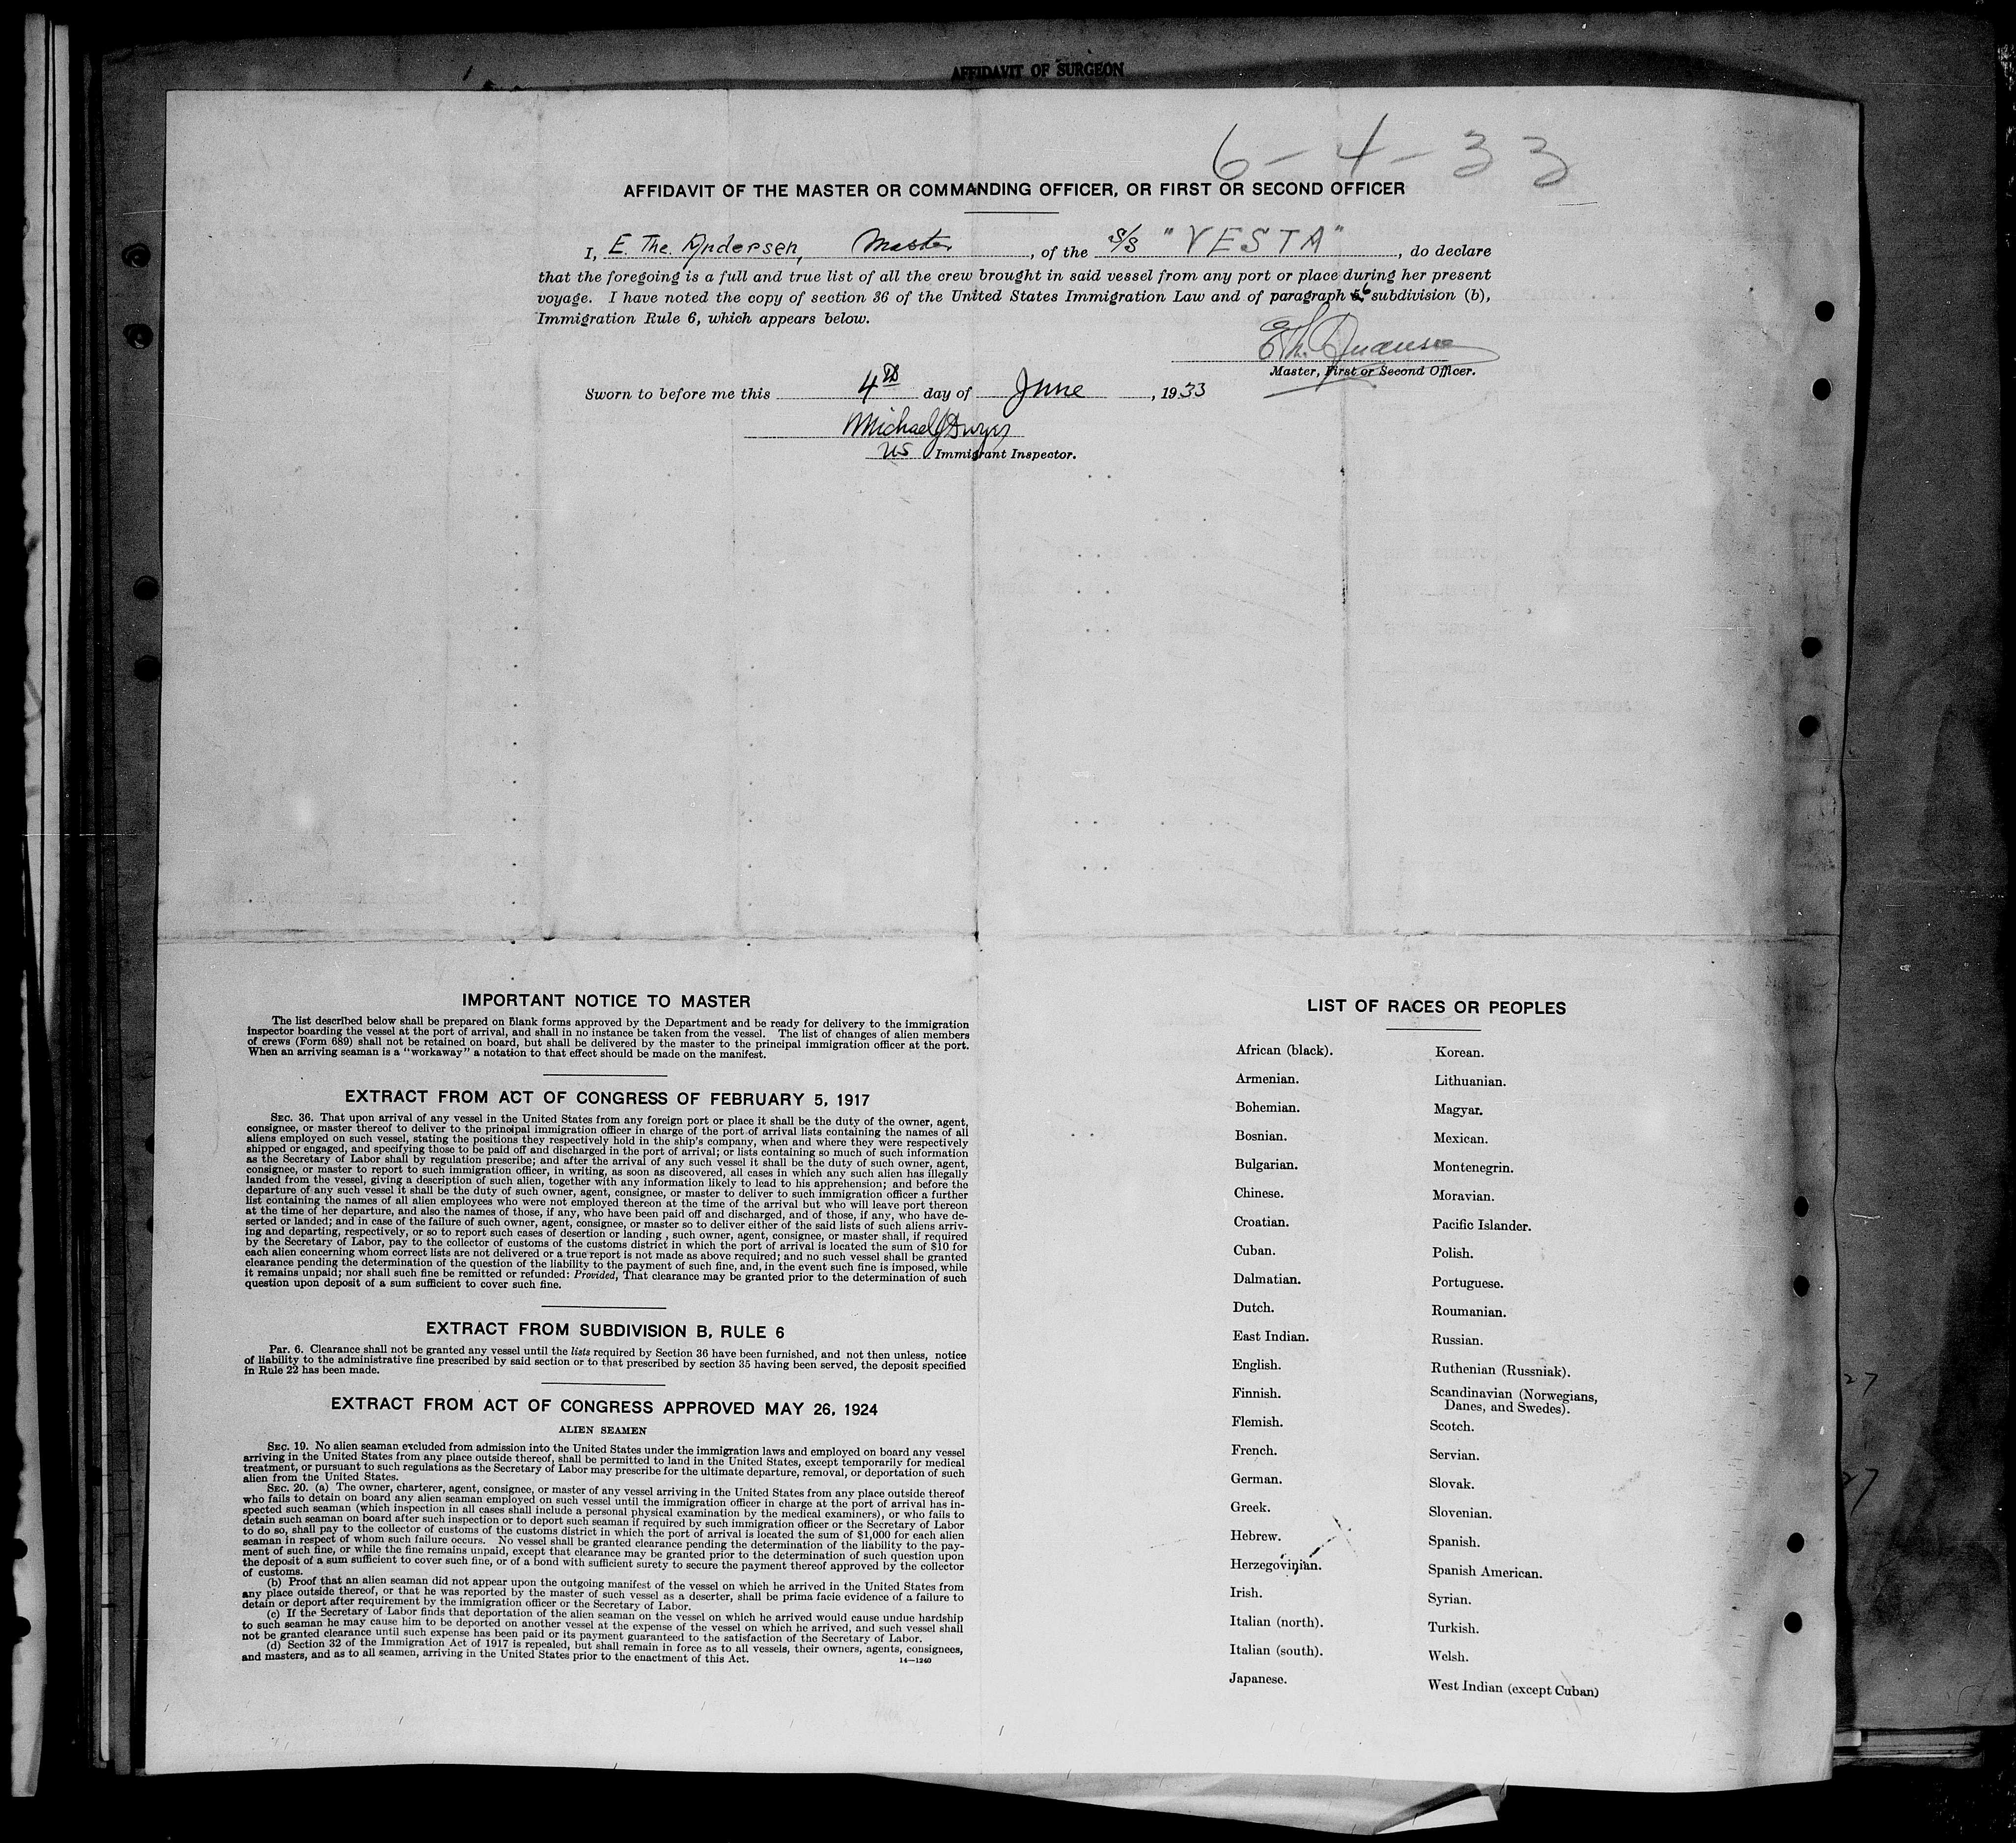 AFFIDAVIT OF SURGEON
6-4-33
AFFIDAVIT OF THE MASTER OR COMMANDING OFFICER, OR FIRST OR SECOND OFFICER
I, E. The. Andersen, Master, of the S/S "VESTA", do declare
that the foregoing is a full and true list of all the crew brought in said vessel from any port or place during her present
voyage. I have noted the copy of section 36 of the United States Immigration Law and of paragraph 5, 6 subdivision (b),
Immigration Rule 6, which appears below.
Master, First or Second Officer.
Sworn to before me this 4th day of June, 1933
Michael J Dwyer
US Immigrant Inspector.
IMPORTANT NOTICE TO MASTER
The list described below shall be prepared on blank forms approved by the Department and be ready for delivery to the immigration
inspector boarding the vessel at the port of arrival, and shall in no instance be taken from the vessel. The list of changes of alien members
of crews (Form 689) shall not be retained on board, but shall be delivered by the master to the principal immigration officer at the port.
When an arriving seaman is a "workaway" a notation to that effect should be made on the manifest.
EXTRACT FROM ACT OF CONGRESS OF FEBRUARY 5, 1917
SEC. 36. That upon arrival of any vessel in the United States from any foreign port or place it shall be the duty of the owner, agent,
consignee, or master thereof to deliver to the principal immigration officer in charge of the port of arrival lists containing the names of all
aliens employed on such vessel, stating the positions they respectively hold in the ship's company, when and where they were respectively
shipped or engaged, and specifying those to be paid off and discharged in the port of arrival; or lists containing so much of such information
as the Secretary of Labor shall by regulation prescribe; and after the arrival of any such vessel it shall be the duty of such owner, agent,
consignee, or master to report to such immigration officer, in writing, as soon as discovered, all cases in which any such alien has illegally
landed from the vessel, giving a description of such alien, together with any information likely to lead to his apprehension; and before the
departure of any such vessel it shall be the duty of such owner, agent, consignee, or master to deliver to such immigration officer a further
list containing the names of all alien employees who were not employed thereon at the time of the arrival but who will leave port thereon
at the time of her departure, and also the names of those, if any, who have been paid off and discharged, and of those, if any, who have de-
serted or landed; and in case of the failure of such owner, agent, consignee, or master so to deliver either of the said lists of such aliens arriv-
ing and departing, respectively, or so to report such cases of desertion or landing , such owner, agent, consignee, or master shall, if required
by the Secretary of Labor, pay to the collector of customs of the customs district in which the port of arrival is located the sum of $10 for
each alien concerning whom correct lists are not delivered or a true report is not made as above required; and no such vessel shall be granted
clearance pending the determination of the question of the liability to the payment of such fine, and, in the event such fine is imposed, while
it remains unpaid; nor shall such fine be remitted or refunded: Provided, That clearance may be granted prior to the determination of such
question upon deposit of a sum sufficient to cover such fine.
EXTRACT FROM SUBDIVISION B, RULE 6
Par. 6. Clearance shall not be granted any vessel until the lists required by Section 36 have been furnished, and not then unless, notice
of liability to the administrative fine prescribed by said section or to that prescribed by section 35 having been served, the deposit specified
in Rule 22 has been made.
EXTRACT FROM ACT OF CONGRESS APPROVED MAY 26, 1924
ALIEN SEAMEN
SEC. 19. No alien seaman excluded from admission into the United States under the immigration laws and employed on board any vessel
arriving in the United States from any place outside thereof, shall be permitted to land in the United States, except temporarily for medical
treatment, or pursuant to such regulations as the Secretary of Labor may prescribe for the ultimate departure, removal, or deportation of such
alien from the United States.
SEC. 20. (a) The owner, charterer, agent, consignee, or master of any vessel arriving in the United States from any place outside thereof
who fails to detain on board any alien seaman employed on such vessel until the immigration officer in charge at the port of arrival has in-
spected such seaman (which inspection in all cases shall include a personal physical examination by the medical examiners), or who fails to
detain such seaman on board after such inspection or to deport such seaman if required by such immigration officer or the Secretary of Labor
to do so, shall pay to the collector of customs of the customs district in which the port of arrival is located the sum of $1,000 for each alien
seaman in respect of whom such failure occurs. No vessel shall be granted clearance pending the determination of the liability to the pay-
ment of such fine, or while the fine remains unpaid, except that clearance may be granted prior to the determination of such question upon
the deposit of a sum sufficient to cover such fine, or of a bond with sufficient surety to secure the payment thereof approved by the collector
of customs.
(b) Proof that an alien seaman did not appear upon the outgoing manifest of the vessel on which he arrived in the United States from
any place outside thereof, or that he was reported by the master of such vessel as a deserter, shall be prima facie evidence of a failure to
detain or deport after requirement by the immigration officer or the Secretary of Labor.
(c) If the Secretary of Labor finds that deportation of the alien seaman on the vessel on which he arrived would cause undue hardship
to such seaman he may cause him to be deported on another vessel at the expense of the vessel on which he arrived, and such vessel shall
not be granted clearance until such expense has been paid or its payment guaranteed to the satisfaction of the Secretary of Labor.
(d) Section 32 of the Immigration Act of 1917 is repealed, but shall remain in force as to all vessels, their owners, agents, consignees,
and masters, and as to all seamen, arriving in the United States prior to the enactment of this Act.
14—1240
LIST OF RACES OR PEOPLES
African (black).
Armenian.
Bohemian.
Bosnian.
Bulgarian.
Chinese.
Croatian.
Cuban.
Dalmatian.
Dutch.
East Indian.
English.
Finnish.
Flemish.
French.
German.
Greek.
Hebrew.
Herzegovinian.
Irish.
Italian (north).
Italian (south).
Japanese.
Korean.
Lithuanian.
Magyar.
Mexican.
Montenegrin.
Moravian.
Pacific Islander.
Polish.
Portuguese.
Roumanian.
Russian.
Ruthenian (Russniak).
Scandinavian (Norwegians,
Danes, and Swedes).
Scotch.
Servian.
Slovak.
Slovenian.
Spanish.
Spanish American.
Syrian.
Turkish.
Welsh.
West Indian (except Cuban)
27
27